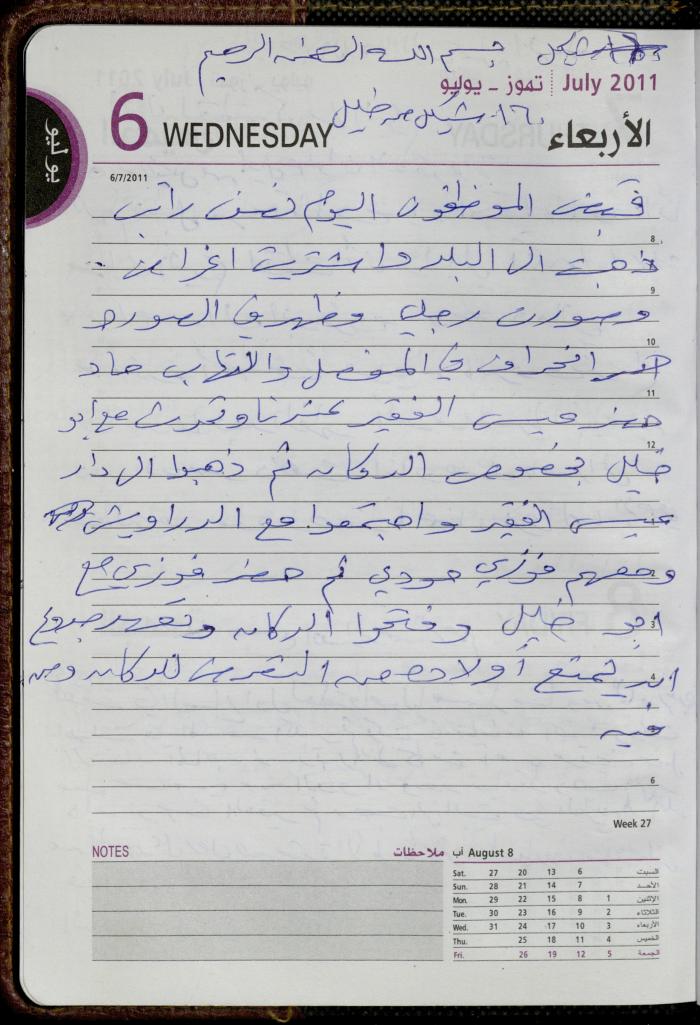 شيكل بسم الله الرحمن الرحيم
تموز - يوليو July 2011
١٦٠ شيكل من خليل
6 WEDNESDAY الأربعاء
يوليو
6/7/2011
قبض الموظفون اليوم نصف راتب
8
ذهبت الى البلد واشتريت اغراض
9
وصورت رجلي وظهر في الصورة
10
انحراف في المفصل والتهاب حاد
11
حضر عيسى الفقير عندنا وتحدث مع ابو
12
خليل بخصوص الدكان ثم ذهبوا الى دار
عيسى الفقير واجتمعوا مع الدراويش
ومعهم فوزي حودي ثم حضر فوزي مع
3
ابو خليل وفتحوا الدكان وتعهد
4
ان يمنع أولاده من التعرض للدكان ومن
فيه
6
Week 27
NOTES ملاحظات
آب August 8
Sat. 27 20 13 6 السبت
Sun. 28 21 14 7 الأحد
Mon. 29 22 15 8 1 الإثنين
Tue. 30 23 16 9 2 الثلاثاء
Wed. 31 24 17 10 3 الأربعاء
Thu. 25 18 11 4 الخميس
Fri. 26 19 12 5 الجمعة